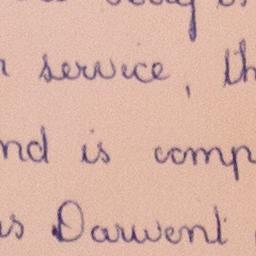 service, th
nd is comp
is Darwent